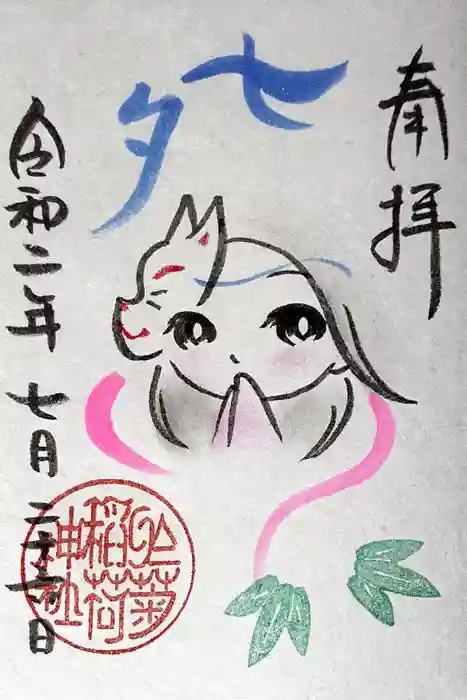 奉拝
七夕
令和二年 七月二十六日
於菊
稲荷
神社